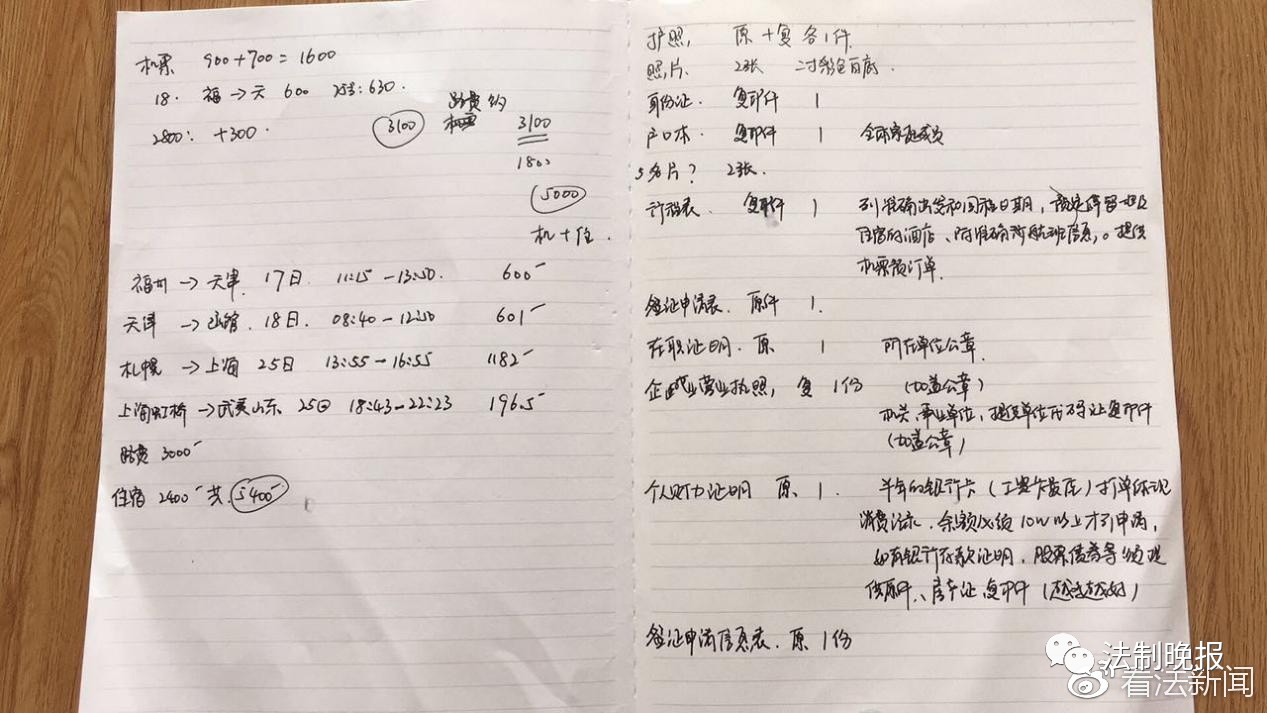 机票 900+700=1600
18. 福→天 600 253:630.
2800: +300.
3100
路费约
3100
1800
5000
机+住.
福州→天津 17日 11:15-13:50. 600
天津→函馆 18日. 08:40-12:50 601
札幌→上海 25日 13:55-16:55 1182
上海虹桥→武夷山东 25日 18:43-22:23 196.5
路费 3000
住宿 2400 共 5400
护照, 原+复各1件.
照片. 2张 二寸彩色白底.
身份证. 复印件 1
户口本. 复印件 1 全体家庭成员
名片? 2张.
行程表. 复印件 1 列准确出发和回程日期,
住宿的酒店、附准确行航班信息。提供
机票预订单.
签证申请表. 原件 1.
在职证明. 原 1 所在单位公章.
企业营业执照, 复 1份 (加盖公章)
机关、事业单位, 提供单位代码证复印件
(加盖公章)
个人财力证明 原 1. 半年的银行卡(工资卡最佳)打单体现
消费流水. 余额必须10W以上才可申请,
如有银行存款证明. 股票债券等须提
供原件、房产证复印件(越多越好)
签证申请信息表. 原 1份
法制晚报
看法新闻